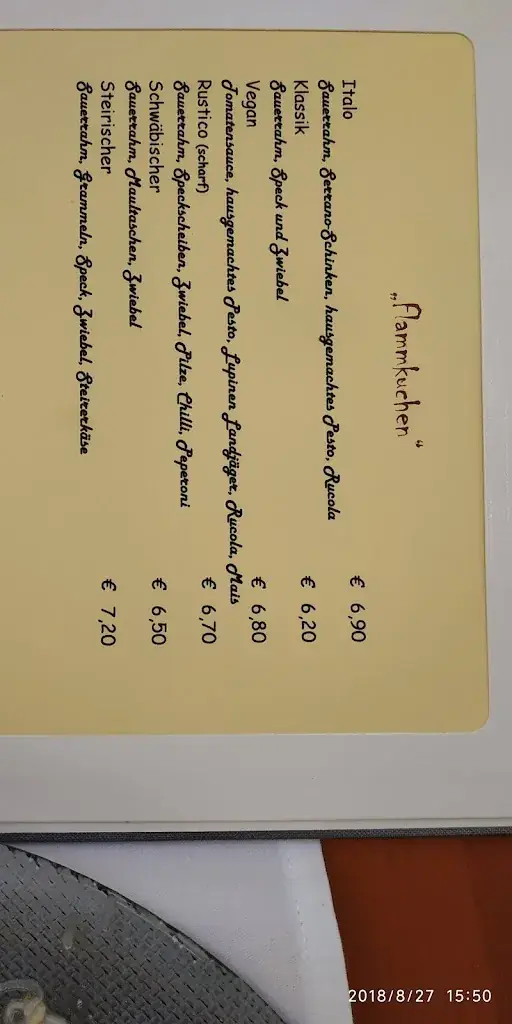 „Flammkuchen“
Italo € 6,90
Sauerrahm, Serrano-Schinken, hausgemachtes Pesto, Rucola
Klassik € 6,20
Sauerrahm, Speck und Zwiebel
Vegan € 6,80
Tomatensauce, hausgemachtes Pesto, Lupinen Landjäger, Rucola, Mais
Rustico (scharf) € 6,70
Sauerrahm, Speckscheiben, Zwiebel, Pilze, Chilli, Peperoni
Schwäbischer € 6,50
Sauerrahm, Maultaschen, Zwiebel
Steirischer € 7,20
Sauerrahm, Grammeln, Speck, Zwiebel, Steirerkäse
2018/8/27 15:50